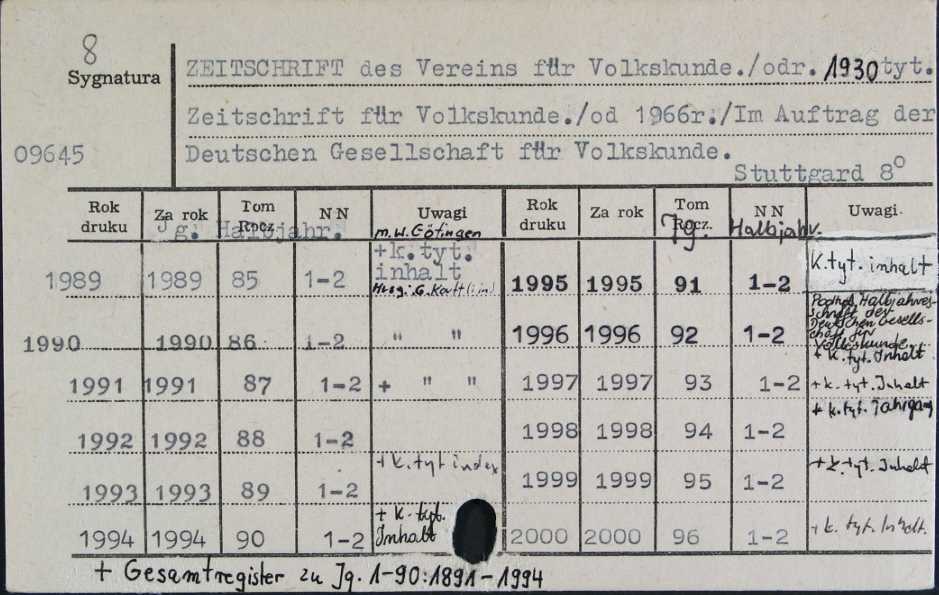 8
Sygnatura
09645
ZEITSCHRIFT des Vereins für Volkskunde./odr. 1930 tyt.
Zeitschrift für Volkskunde./od 1966r./Im Auftrag der
Deutschen Gesellschaft für Volkskunde.
Stuttgard 8°
Rok druku Za rok Tom Rocz. NN Uwagi Rok druku Za rok Tom Rocz. NN Uwagi.
Jg. Halbjahr. m.W. Götingen Jg. Halbjahr.
1989 1989 85 1-2 +k.tyt. inhalt 1995 1995 91 1-2 K.tyt. inhalt
1990 1990 86 1-2 " " 1996 1996 92 1-2 Halbjahres-
schrift der
Deutschen Gesells-
chaft für
Volkskunde
+ k.tyt. Inhalt
1991 1991 87 1-2 + " " 1997 1997 93 1-2 +k.tyt. Inhalt
1992 1992 88 1-2 1998 1998 94 1-2 + k.tyt. Jahrgang
1993 1993 89 1-2 +k.tyt index 1999 1999 95 1-2 +k.tyt. Inhalt
1994 1994 90 1-2 + k.tyt. Inhalt 2000 2000 96 1-2 +k. tyt. Inholt.
+ Gesamtregister zu Jg. 1-90:1891-1994